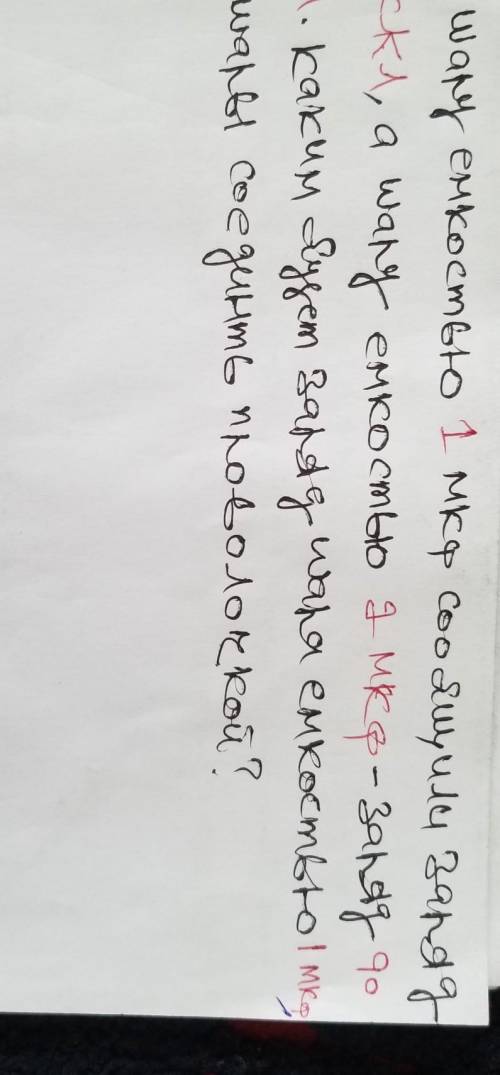 шару емкостью 1 мкф сообщили заряд
скл, а шару емкостью 1 мкф - заряд 90
. каким будет заряд шара емкостью 1 мкф,
шары соединть проволочкой?